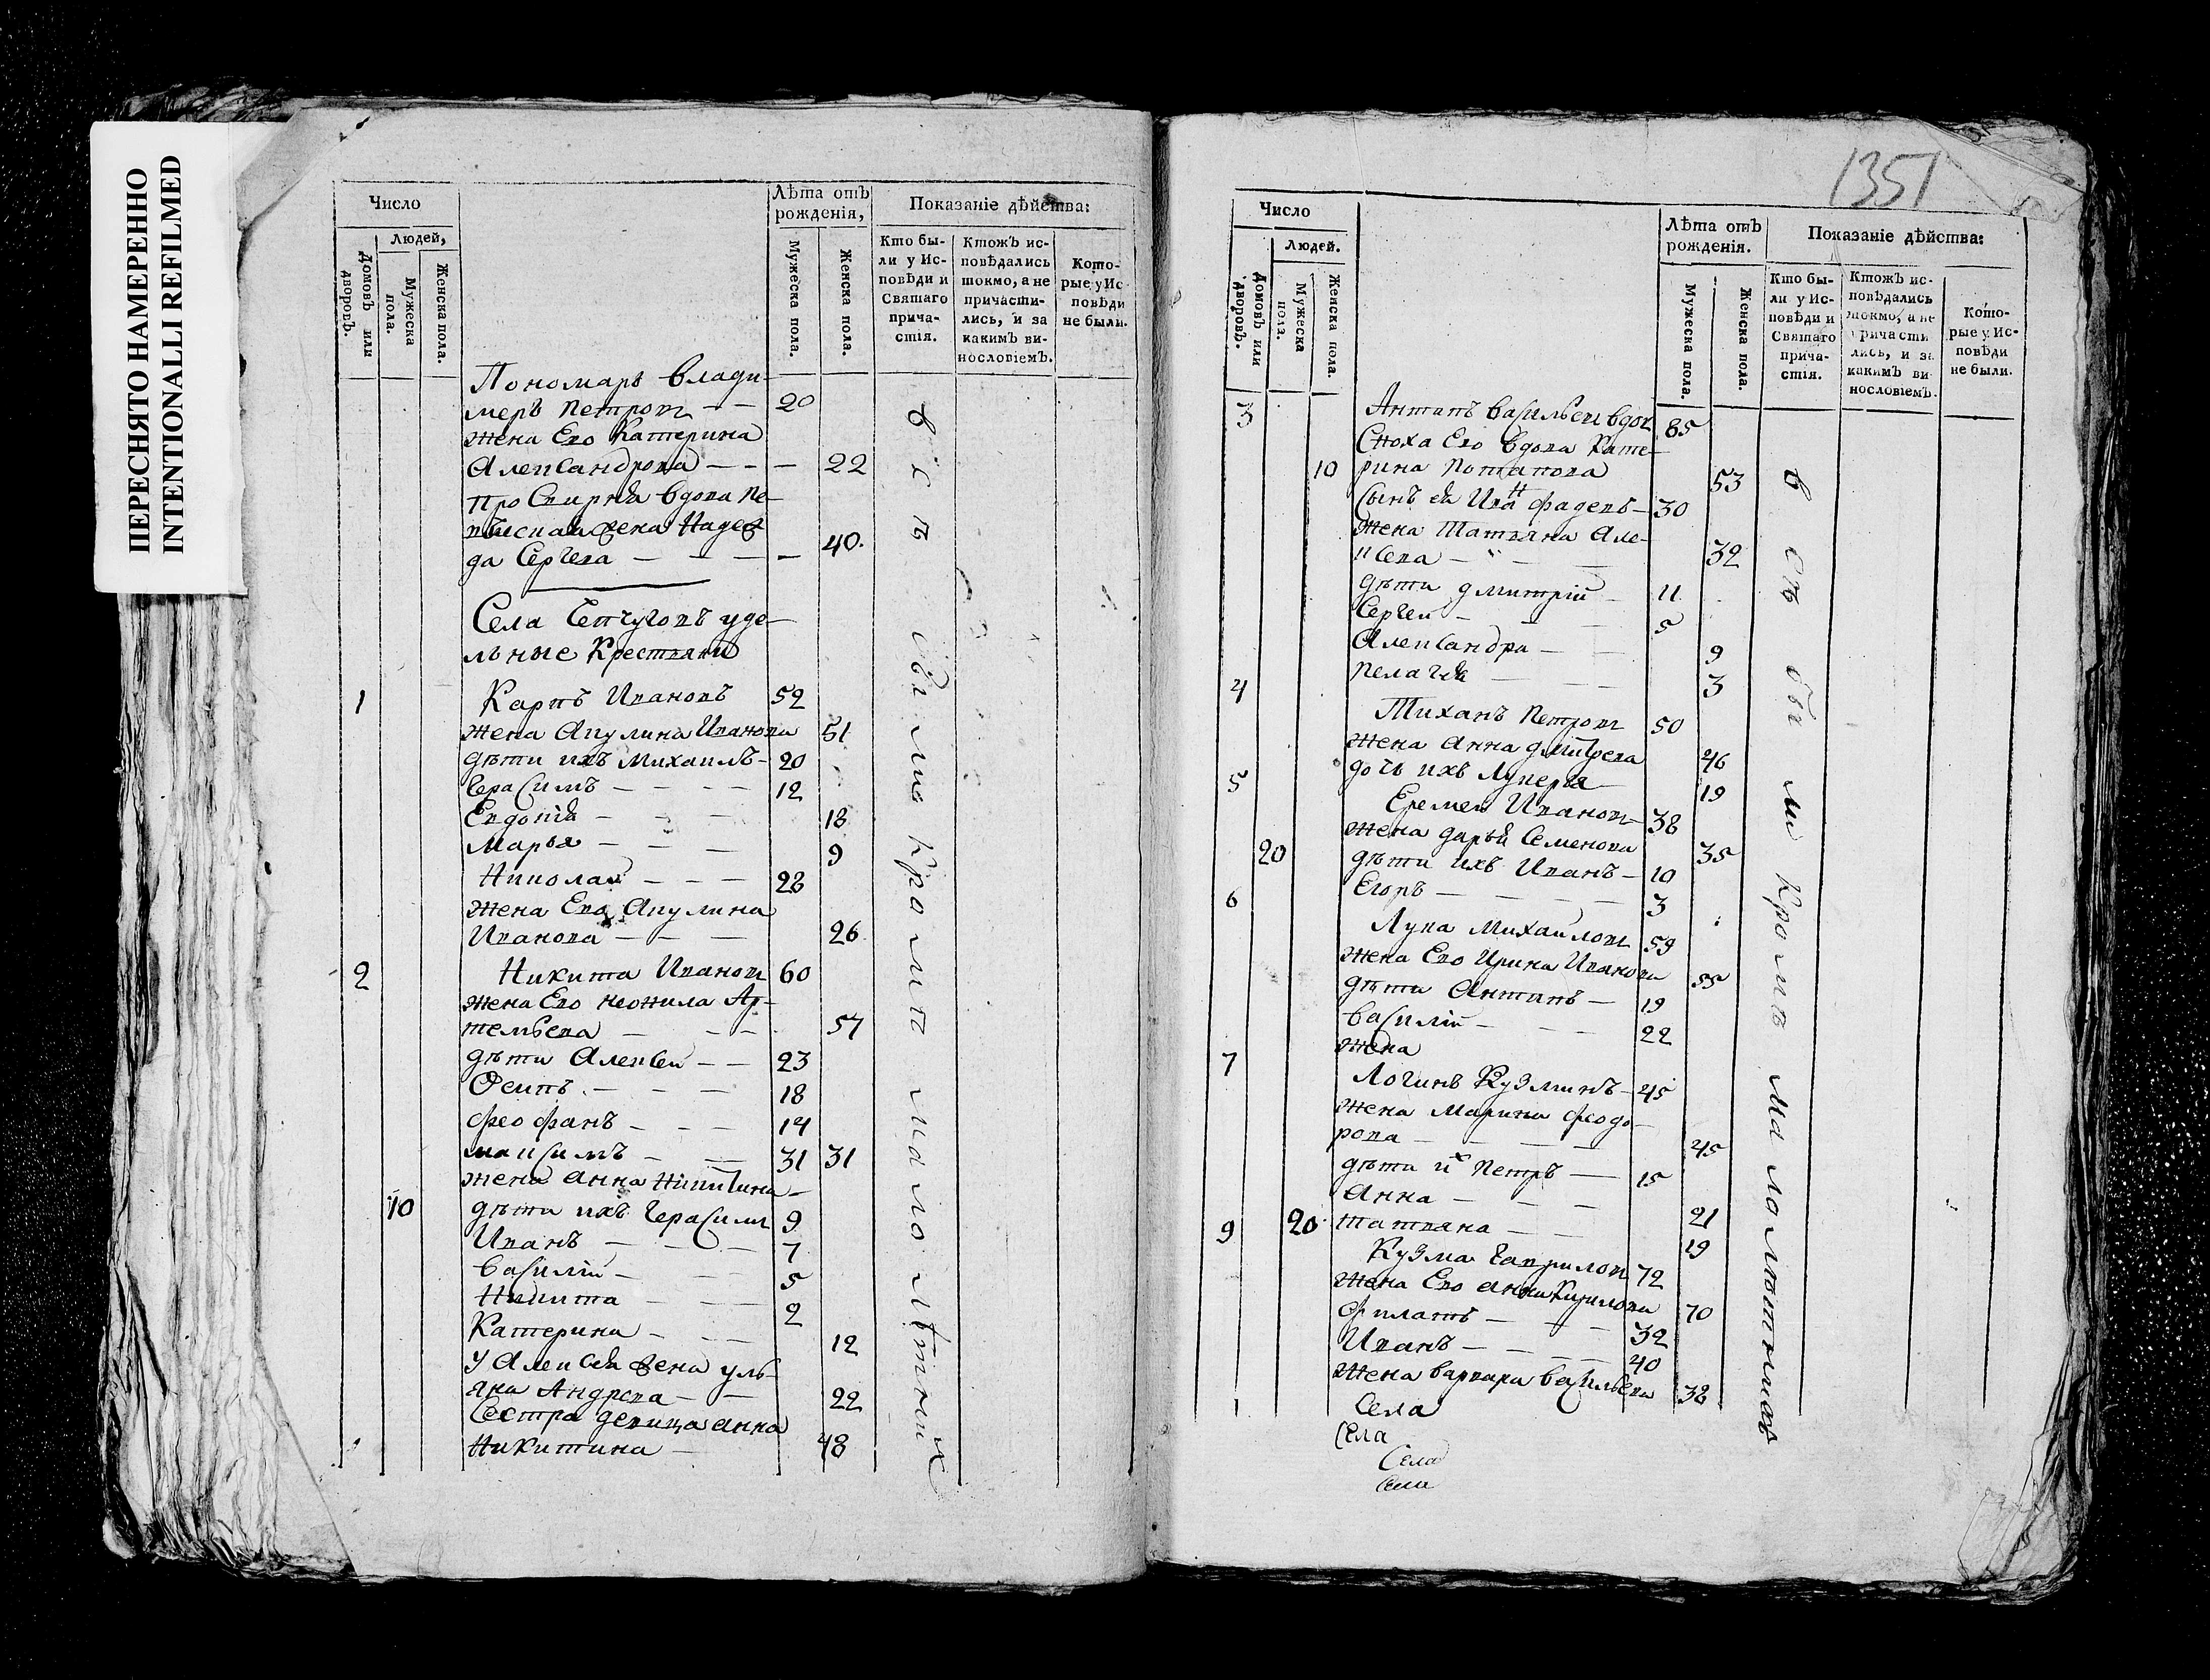 ПЕРЕСНЯТО НАМЕРЕННО
INTENTIONALLI REFILMED
Число
Людей,
Домовъ или дворовъ.
Мужеска пола.
Женска пола.
Лѣта отъ рожденія,
Мужеска пола.
Женска пола.
Показаніе дѣйства:
Кто были у Исповѣди и Святаго причастія.
Ктожъ исповѣдались токмо, а не причастились, и за какимъ винословіемъ.
Которые у Исповѣди не были.
Пономарь Влади-
меръ Петровъ — — 20
жена Ево Катерина
Александрова — — — 22
вдова
жена Надеж
да Сергеева — — — 40.
Села уде-
льные Крестьяни
1 Карпъ Ивановъ 52
жена Акулина Иванова 51
дѣти ихъ Михаилъ — 20
Герасимъ — — — — 12
Евдокія — — — 18
Марья — — — 9
Николай — — — 28
жена Ево Акулина
Иванова — — — 26
2 Никита Ивановъ 60
жена Ево Неонила Ар-
темьева — — — 57
дѣти Алексей — — 23
Осипъ — — — 18
Феофанъ — — — 14
Максимъ — — 31 31
жена Анна Никитина —
10 дѣти ихъ Герасимъ 9
Иванъ — — — 7
Василій — — 5
Никита — — — 2
Катерина — — — 12
у Алексея жена Уль-
яна Андреева — — 22
Сестра девица Анна
Никитина — 48
всѣ были кромѣ малолѣтныхъ
1351
Число
Людей.
Домовъ или дворовъ.
Мужеска пола.
Женска пола.
Лѣта отъ рожденія.
Мужеска пола.
Женска пола.
Показаніе дѣйства:
Кто были у Исповѣди и Святаго причастія.
Ктожъ исповѣдались токмо, а не причастились, и за какимъ винословіемъ.
Которые у Исповѣди не были.
3 Антипъ Васильевъ вдов 85
Сноха Ево вдова Кате-
10 рина Потапова 53
Сынъ ея Иванъ Фадеевъ — 30
жена Татьяна Але-
ксеева — — — 32
дѣти Дмитрій — 11
Сергей — — — 5
Александра — — 9
Пелагея — — — 3
4 Михаилъ Петровъ 50
жена Анна Дмитрева 46
дочь ихъ Лукерья 19
5 Еремей Ивановъ — 38
жена Дарья Семенова 35
20 дѣти ихъ Иванъ — 10
Егоръ — — — — 3
6 Лука Михайловъ 59
жена Ево Ирина Иванова 55
дѣти Антипъ — 19
Василій — — — 22
жена
7 Логинъ Кузминъ — 45
жена Марина Феодо-
рова — — — — 45
дѣти их Петръ — 15
Анна — — — 21
20 Татьяна — — 19
9 Кузма Гавриловъ 72
жена Ево Анна Кирилова 70
Филатъ — — — 32
Иванъ — — — — 40
жена Варвара Васильева 38
Села
Села
Села
Села
всѣ были кромѣ малолѣтныхъ